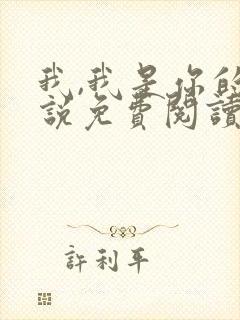 我,我是你的
說免費閱讀
許利平